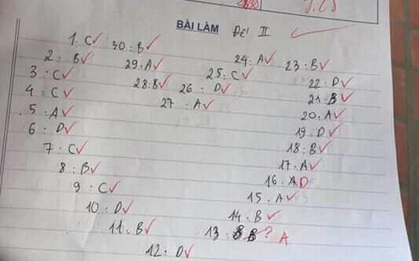 BÀI LÀM Đề II
1. C 30. B
2. B 29. A 24. A 23. B
3. C 28. B 26. D 25. C 22. D
4. C 27. A 21. B
5. A 20. A
6. D 19. D
7. C 18. B
8. B 17. A
9. C 16. A D
10. D 15. A
11. B 14. B
12. D 13. B ? A